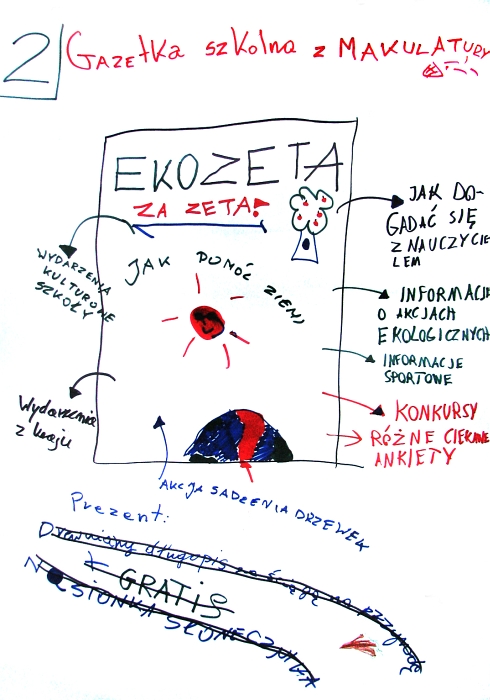 2 GAZEtKA szkolna z MAKULATURY
EKOZETA
ZA ZETA!
JAK POMÓC ZIEMI
WYDARZENIA
KULTUROWE
SZKOŁY
Wydarzenia
z kraju
JAK DO-
GADAĆ SIĘ
Z NAUCZYCIE
LEM
INFORMACJE
O AKCJACH
EKOLOGICZNYCH
INFORMACJE
SPORTOWE
KONKURSY
RÓŻNE CIEKAWE
ANKIETY
AKCJA SADZENIA DRZEWEK
Prezent:
Drewniany długopis ze
GRATIS
NASIONKA SŁONECZNIKA